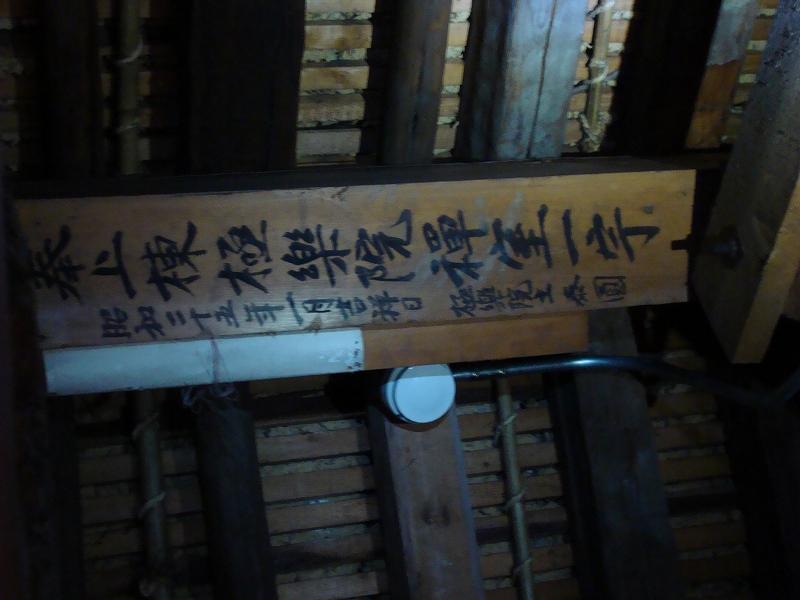 奉上棟極樂院禪堂一宇
昭和三十五年一月吉祥日 極樂院主 泰圓